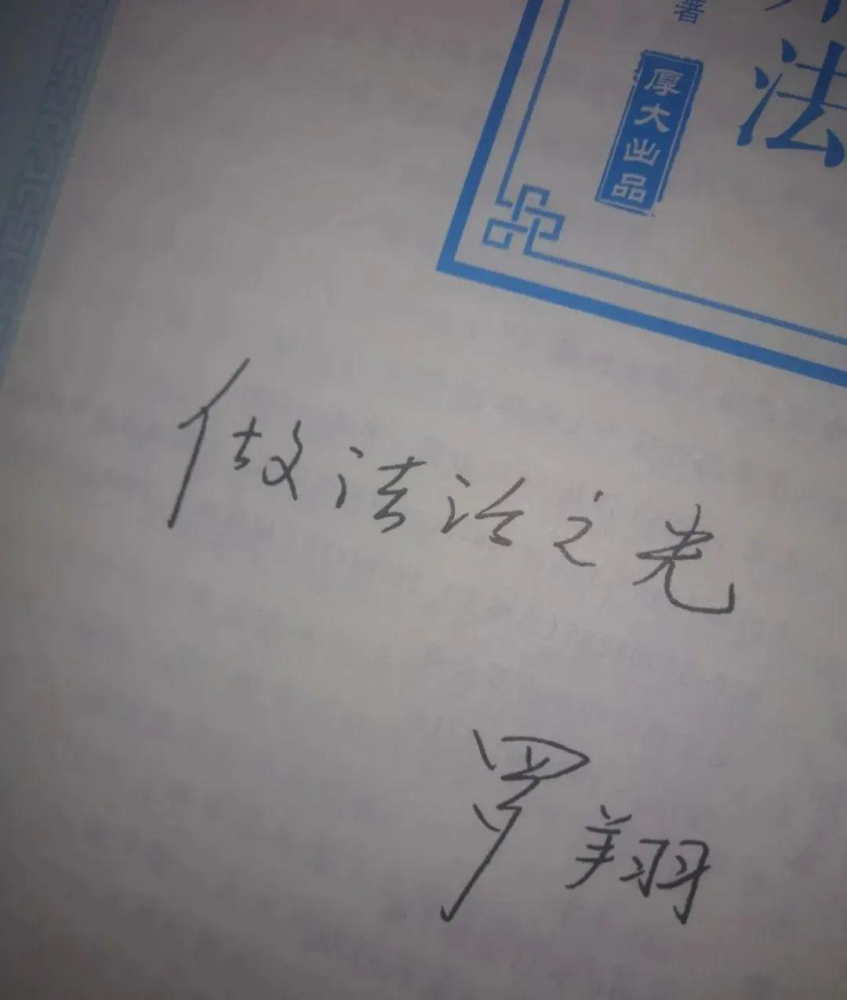 著
厚大出品
法
做法治之光
罗翔